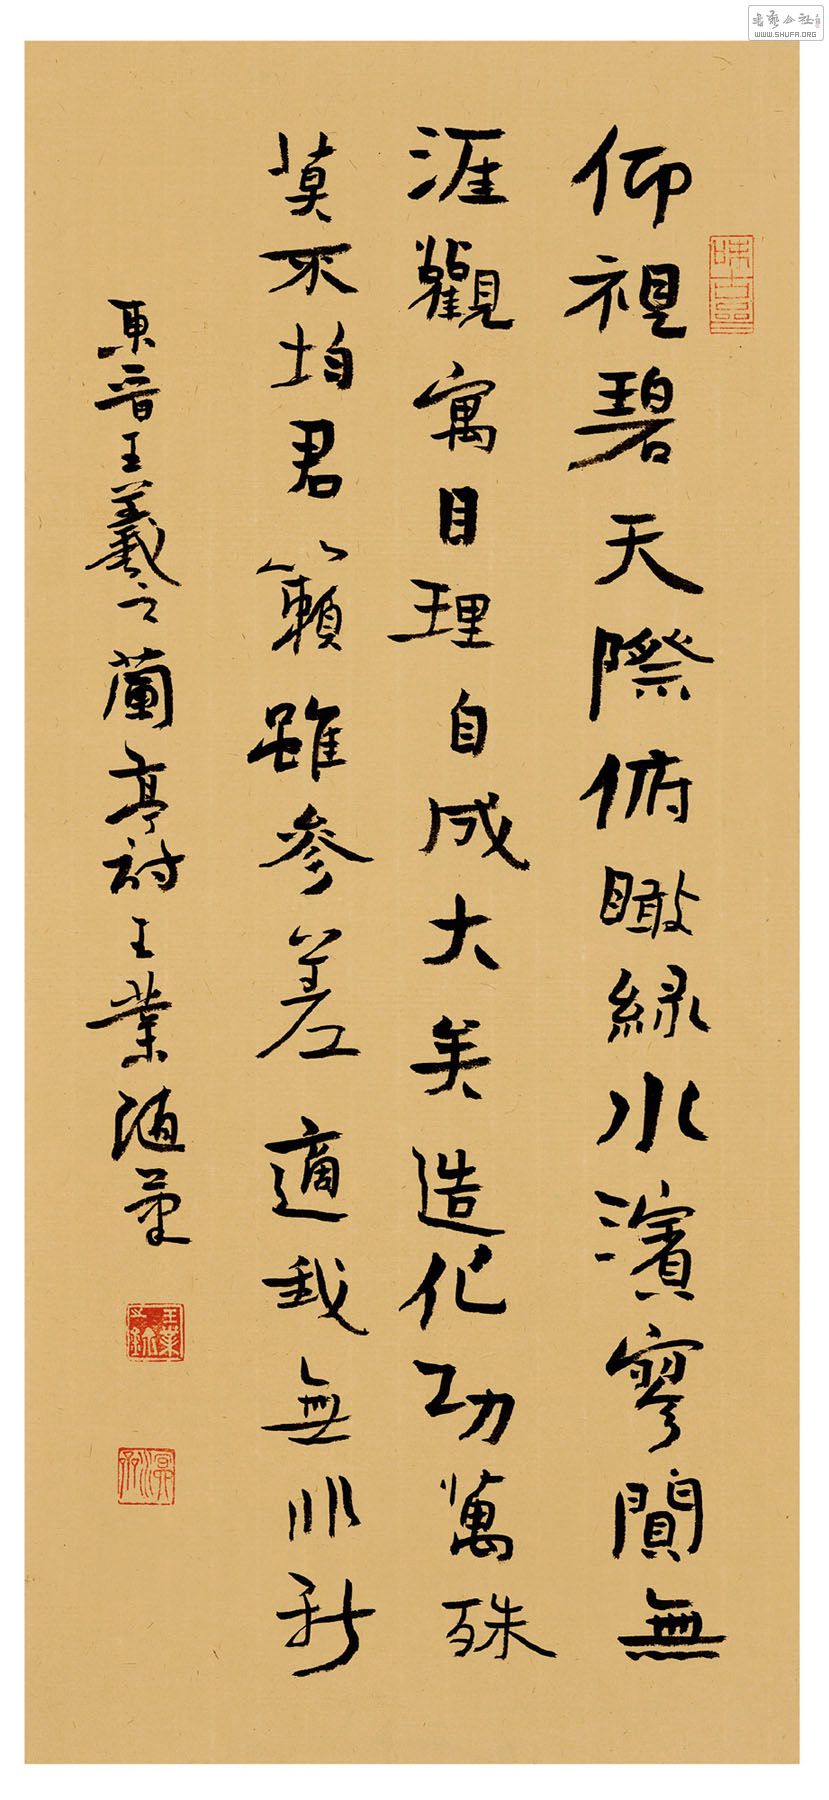 書藝公社
WWW.SHUFA.ORG
仰視碧天際俯瞰緑水濱寥閴無
涯觀寓目理自成大矣造化功萬殊
莫不均君籟雖參差適我無非新
東晉王羲之蘭亭詩王業随筆